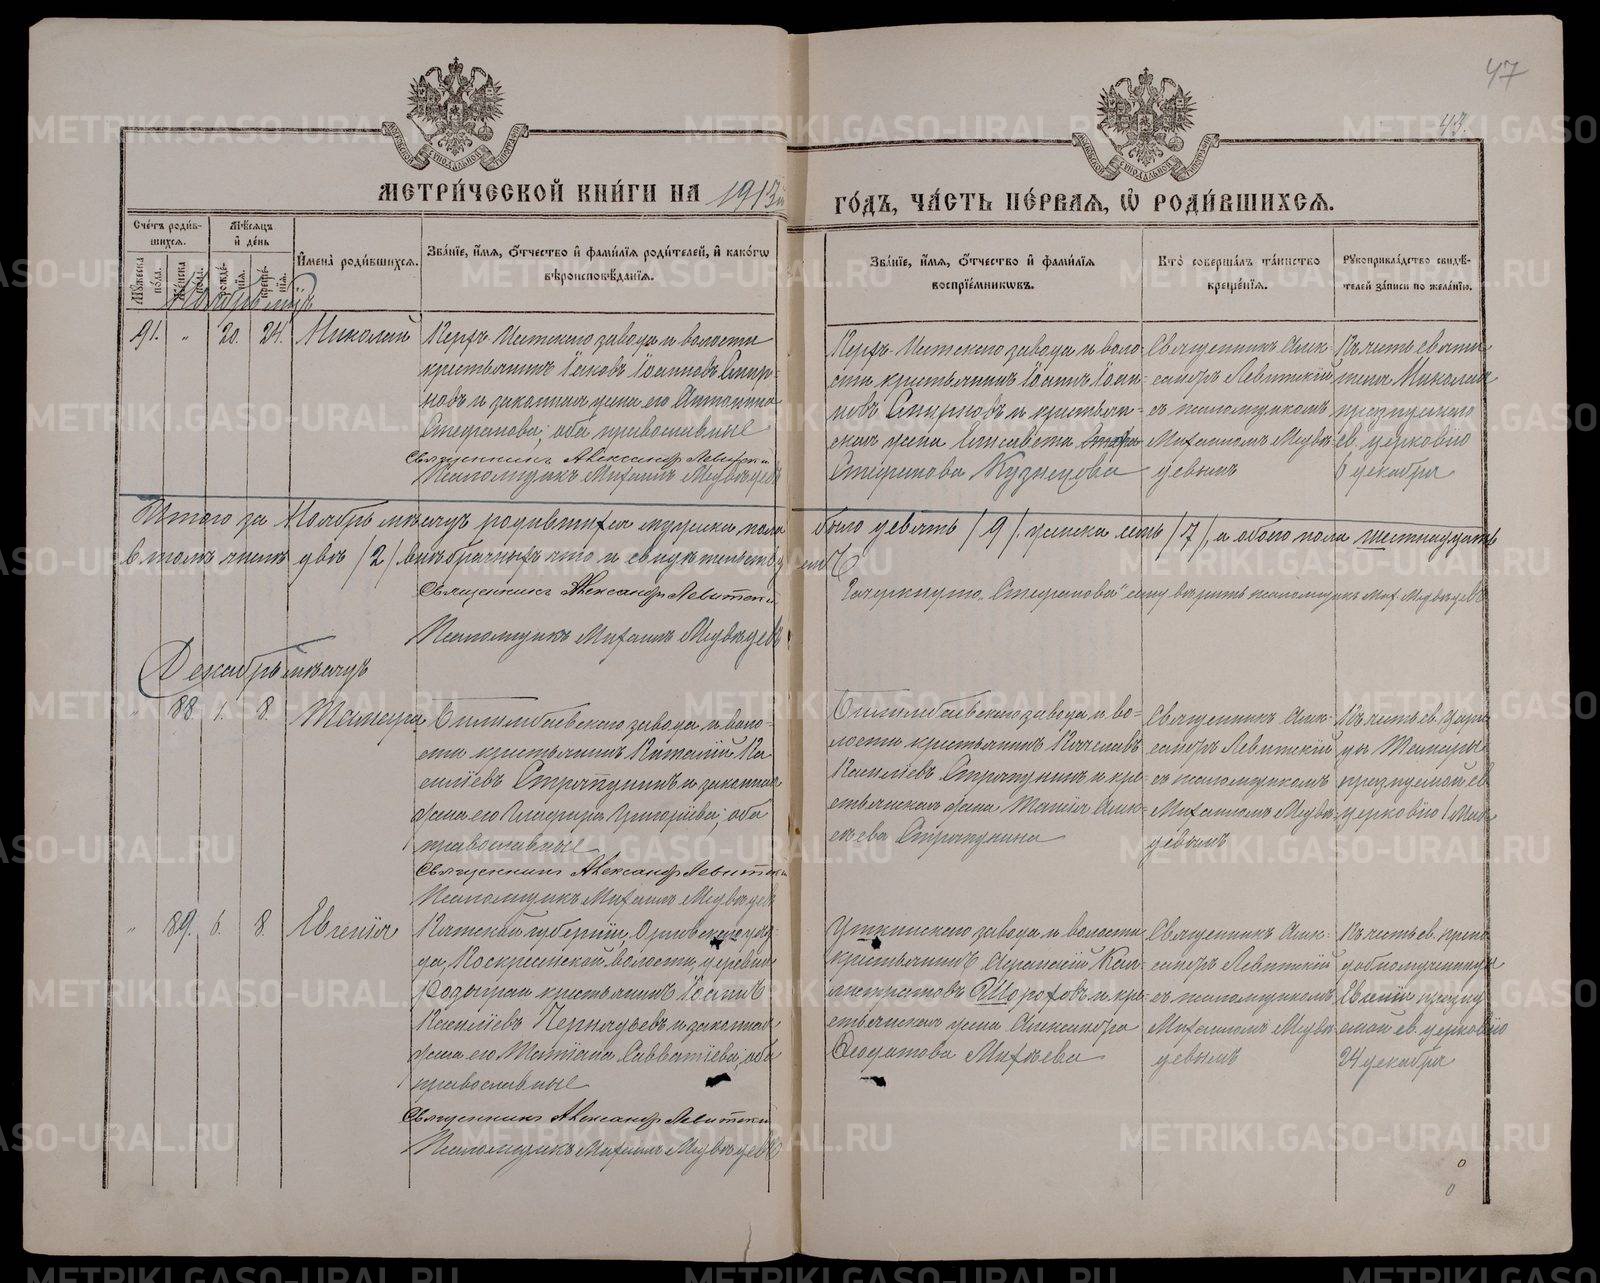 47
43.
МЕТРИ́ЧЕСКОЙ КНИ́ГИ НА 1913й ГО́ДЪ, ЧА́СТЬ ПЕ́РВАЯ, Ѡ҆ РОДИ́ВШИХСЯ.
Сче́тъ роди́вшихся.
Мужеска по́ла.
Же́нска по́ла.
Мѣ́сяцъ и҆ де́нь
рожде́нія.
креще́нія.
И҆мена̀ роди́вшихся.
Зва́ніе, и҆́мя, ѻ҆́тчество и҆ фами́лія роди́телей, и҆ како́гѡ
вѣроисповѣ́данія.
Зва́ніе, и҆́мя, ѻ҆́тчество и҆ фами́лія
воспріе́мникѡвъ.
Кто̀ соверша́лъ та́инство
креще́нія.
Рукоприкла́дство свидѣ́-
телей за́писи по жела́нію.
91. " 20. 24. Николай
крестьянинъ Іаковъ Іоанновъ Смир-
новъ и законная жена его Антонина
Стефанова, оба православные
Священникъ Александръ Левитскій
Псаломщикъ Михаилъ Медвѣдевъ
сти крестьянинъ Іоаннъ Іоан-
новъ Смирновъ и крестьян-
ская жена Елисавета
Стефанова Кузнецова
Священникъ Алек-
сандръ Левитскій
съ псаломщикомъ
Михаиломъ Медвѣ-
девымъ
Въ честь святи-
теля Николая
празднуемаго
св. церковію
6 декабря
Итого за Ноябрь мѣсяцъ родившихся мужска пола было девять /9/, женска семь /7/, а обоего пола шестнадцать
въ томъ числѣ двѣ /2/ внѣбрачныхъ что и свидѣтельствуемъ
Священникъ Александръ Левитскій
Зачеркнуто „Стефанова" сему вѣрить псаломщикъ Мих. Медвѣдевъ
Псаломщикъ Михаилъ Медвѣдевъ
Декабрь мѣсяцъ
" 88 1. 8. Тамара
Билимбаевскаго завода и воло-
сти крестьянинъ Виталій Ва-
силіевъ Стряпунинъ и законная
жена его Глафира Григоріева, оба
православные
Священникъ Александръ Левитскій
Псаломщикъ Михаилъ Медвѣдевъ
Билимбаевскаго завода и во-
лости крестьянинъ Вячеславъ
Василіевъ Стряпунинъ и кре-
стьянская жена Таисія Алек-
сѣева Стряпунина
Священникъ Алек-
сандръ Левитскій
съ псаломщикомъ
Михаиломъ Медвѣ-
девымъ
Въ честь св. цари-
цы Тамары
празднуемой св.
церковію 1 Мая
" 89. 6. 8. Евгенія
Вятской губерніи, Орловскаго уѣз-
да, Воскресенской волости, деревни
крестьянинъ Іоаннъ
Василіевъ и законная
жена его Татіана Савватіева, оба
православные
Священникъ Александръ Левитскій
Псаломщикъ Михаилъ Медвѣдевъ
Уткинскаго завода и волости
крестьянинъ Аѳанасій Кал-
листратовъ Шороховъ и кре-
стьянская жена Александра
Ѳеодотова Михѣева
Священникъ Алек-
сандръ Левитскій
съ псаломщикомъ
Михаиломъ Медвѣ-
девымъ
Въ честь св. препо-
добномученицы
Евгеніи праздну-
емой св. церковію
24 декабря
METRIKI.GASO-URAL.RU